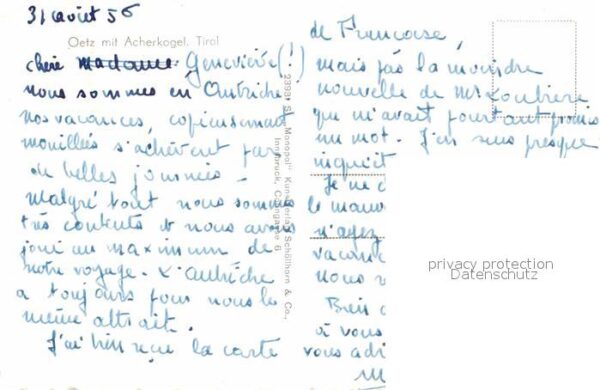 31 août 56
Oetz mit Acherkogel. Tirol
chère madame Geneviève (!)
nous sommes en Autriche
nos vacances, copieusement
mouillées s'achèvent par
de belles journées -
malgré tout nous sommes
très contents et nous avons
joui au maximum de
notre voyage. L'Autriche
a toujours pour nous le
même attrait.
J'ai bien reçu la carte
23931 "Monopol" Kunstverlag Schöllhorn & Co.,
Innsbruck, 6
de Françoise,
mais pas la moindre
nouvelle de Mr Loubière
qui m'avait pourtant promis
un mot. J'en suis presque
inquièt
Je ne c
le mauv
n'ayez
vacanc
nous v
Bien c
à vous
vous adr
M
privacy protection
Datenschutz